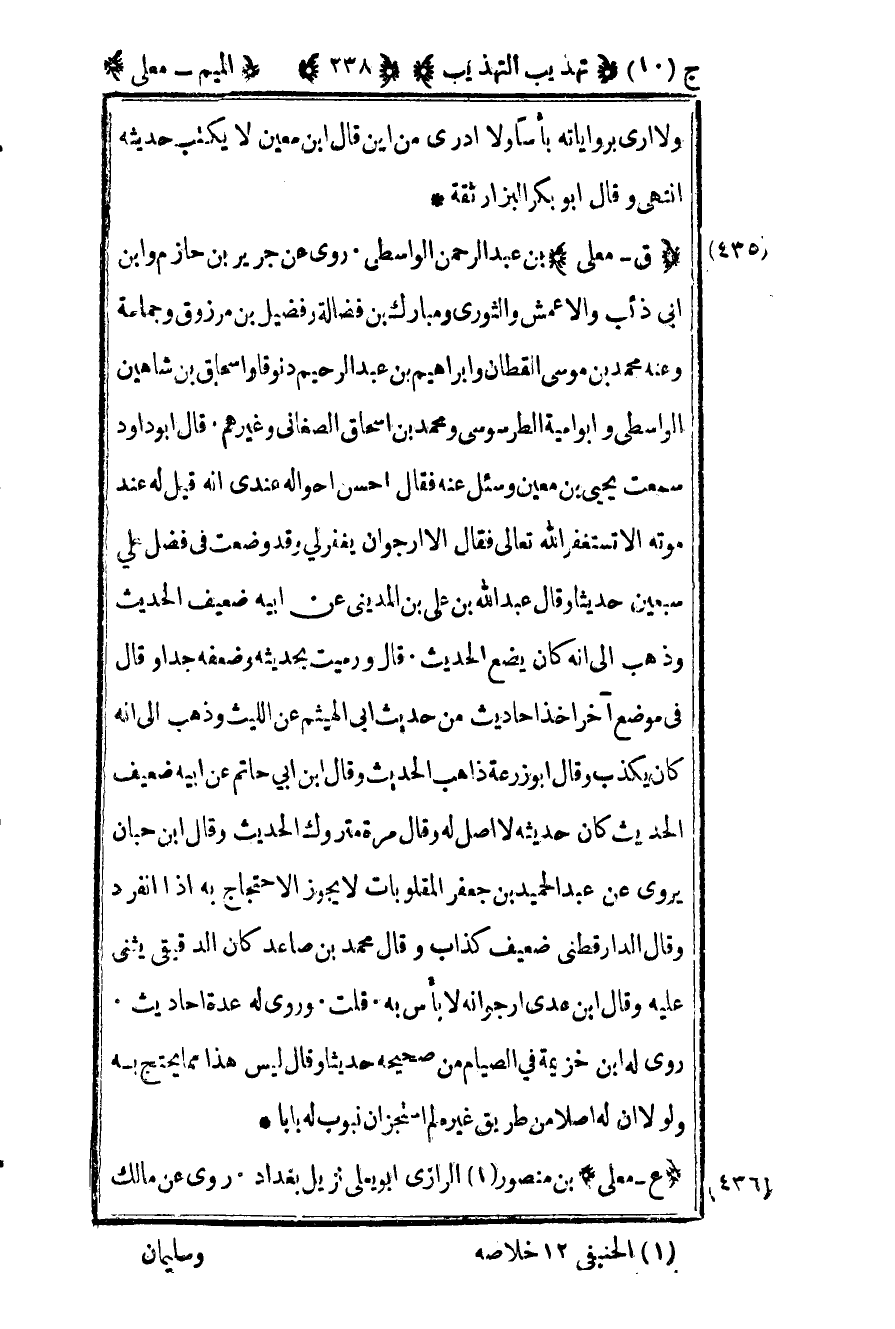 ج (١٠) ﴿ تهذيب التهذيب ﴾ ﴿ ٢٣٨ ﴾ ﴿ الميم ـ معلى ﴾
ولا ارى برواياته بأسا ولا ادرى من اين قال ابن معين لا يكتب حديثه
انتهى و قال ابو بكر البزار ثقة *
(٤٣٥) ﴿ ق ـ معلى ﴾ بن عبد الرحمن الواسطى ٠ روى عن جرير بن حازم وابن
ابى ذئب والاعمش والثورى ومبارك بن فضالة رفضيل بن مرزوق وجماعة
وعنه محمد بن موسى القطان وابراهيم بن عبد الرحيم دنوقا واسحاق بن شاهين
الواسطى و ابو امية الطرسوسى و محمد بن اسحاق الصغانى وغيرهم ٠ قال ابو داود
سمعت يحيى بن معين وسئل عنه فقال احسن احواله عندى انه قيل له عند
موته الا تستغفر الله تعالى فقال الا ارجو ان يغفر لي وقد وضعت فى فضل علي
سبعين حديثا وقال عبد الله بن على بن المدينى عن ابيه ضعيف الحديث
وذهب الى انه كان يضع الحديث ٠ قال و رميت بحديثه وضعفه جدا و قال
فى موضع آخر اخذ احاديث من حديث ابى الهيثم عن الليث وذهب الى انه
كان يكذب وقال ابو زرعة ذاهب الحديث وقال ابن ابي حاتم عن ابيه ضعيف
الحديث كان حديثه لا اصل له وقال مرة متروك الحديث وقال ابن حبان
يروى عن عبد الحميد بن جعفر المقلوبات لا يجوز الاحتجاج به اذا انفرد
وقال الدارقطنى ضعيف كذاب و قال محمد بن صاعد كان الدقيقى يثنى
عليه وقال ابن عدى ارجو انه لا بأس به ٠ قلت ٠ وروى له عدة احاديث ٠
روى له ابن خزيمة في الصيام من صحيحه حديثا وقال ليس هذا مما يحتج به
ولولا ان له اصلا من طريق غيره لم استجز ان نبوب له بابا *
(٤٣٦) ﴿ ع ـ معلى ﴾ بن منصور (١) الرازى ابو يعلى نزيل بغداد ٠ روى عن مالك
(١) الحنيفى ١٢ خلاصه
وسليمان